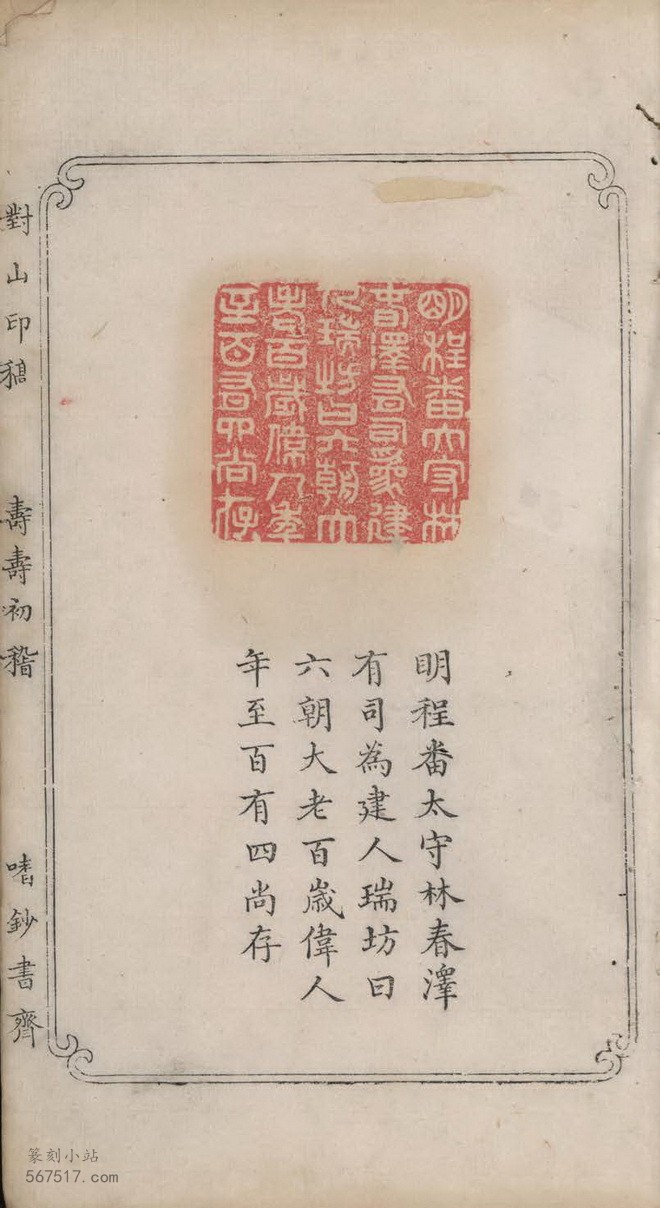 明程番太守林
春澤有司為建
人瑞坊曰六朝大
老百歲偉人年
至百有四尚存
明程番太守林春澤
有司為建人瑞坊曰
六朝大老百歲偉人
年至百有四尚存
對山印稿 壽壽初稽 嗜鈔書齋
篆刻小站
567517.com